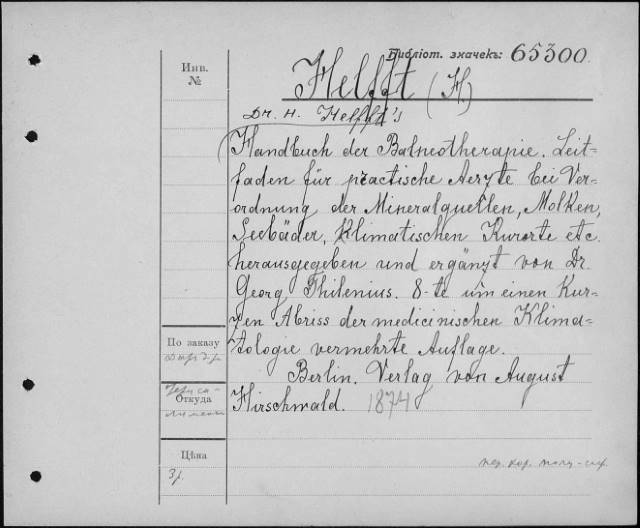 Библіот. значекъ: 65300.
Инв.
№
Helfft (H.)
Dr. H. Helfft's
Handbuch der Balneotherapie. Leit=
faden für practische Aerzte bei Ver=
ordnung der Mineralquellen, Molken,
Seebäder, Klimatischen Kurorte etc.
herausgegeben und ergänzt von Dr.
Georg Thilenius. 8-te um einen Kur=
zen Abriss der medicinischen Klima=
tologie vermehrte Auflage.
Berlin. Verlag von August
Hirschwald. 1874
По заказу
Откуда
Цѣна
3р.